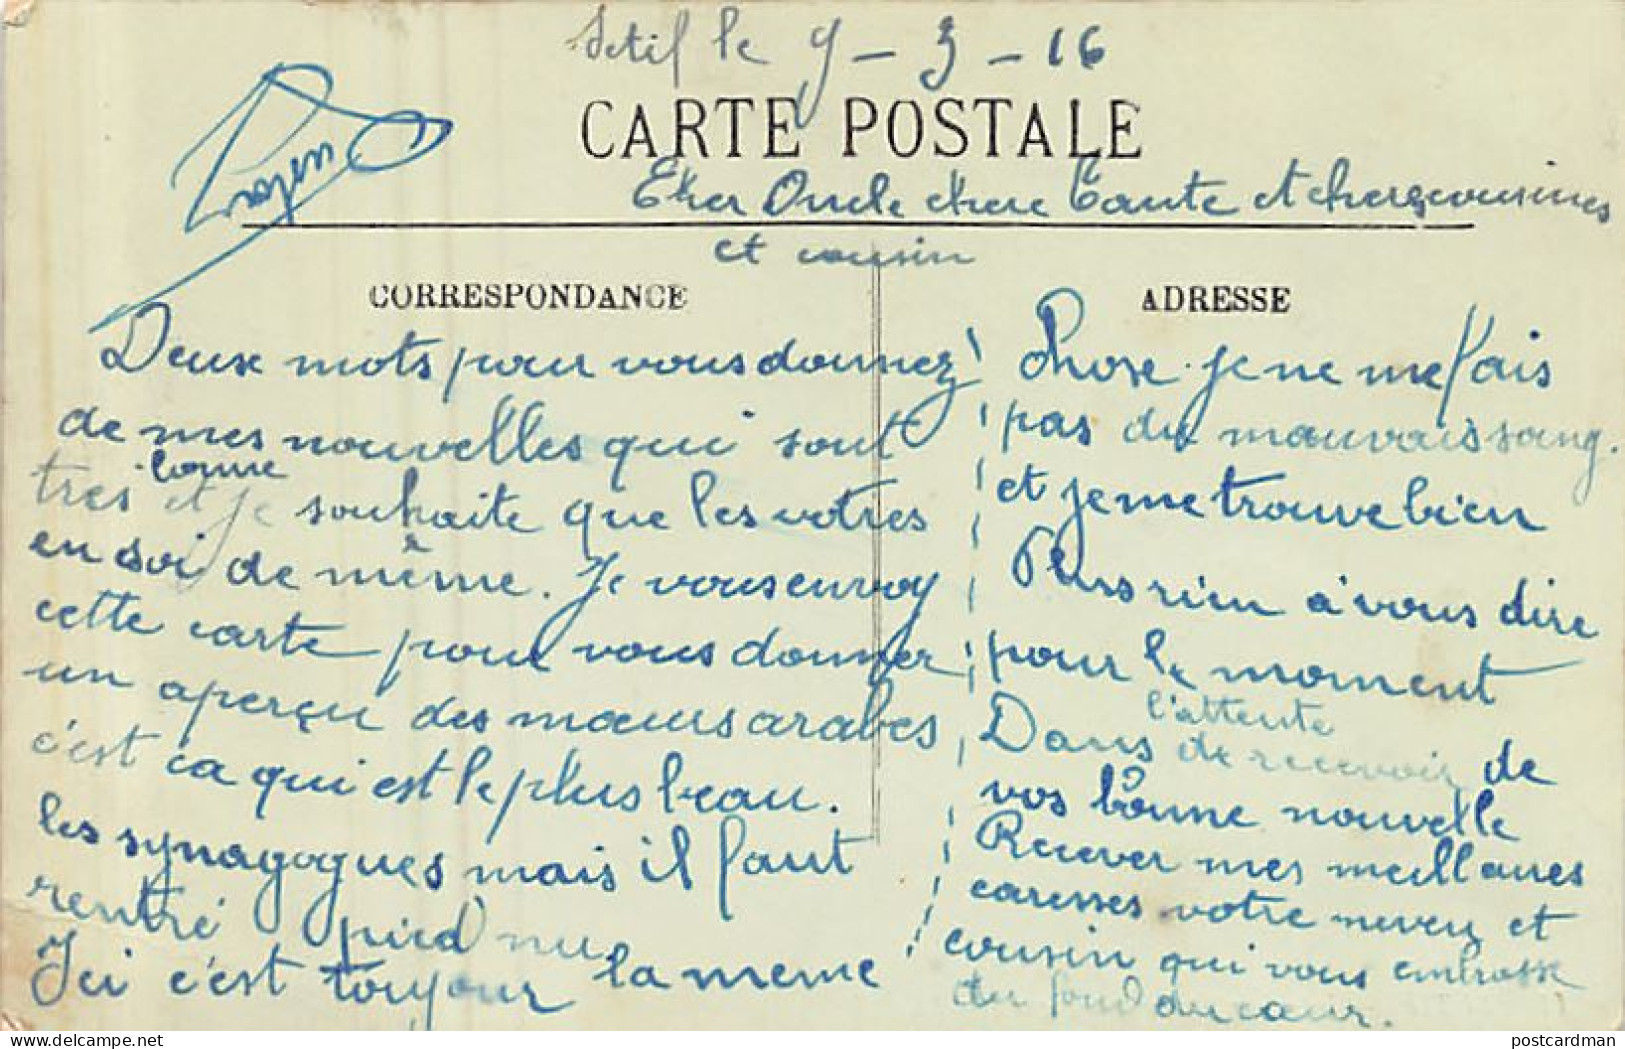 Setif le 9 - 3 - 16
CARTE POSTALE
Cher Oncle chere Tante et cheres cousines
et cousin
CORRESPONDANCE
Deux mots pour vous donnez
de mes nouvelles qui sont
tres bonne et je souhaite que les votres
en soi de même. Je vous envoy
cette carte pour vous donner
un aperçu des mœurs arabes
c'est ca qui est le plus beau.
les synagogues mais il faut
rentré pied nu
Ici c'est toujour la meme
ADRESSE
Chose. je ne me fais
pas du mauvais sang.
et je me trouve bien
Plus rien à vous dire
pour le moment
Dans l'attente de recevoir de
vos bonne nouvelle
Recever mes meillaures
caresses votre neveu et
cousin qui vous embrasse
du fond du cœur.
postcardman